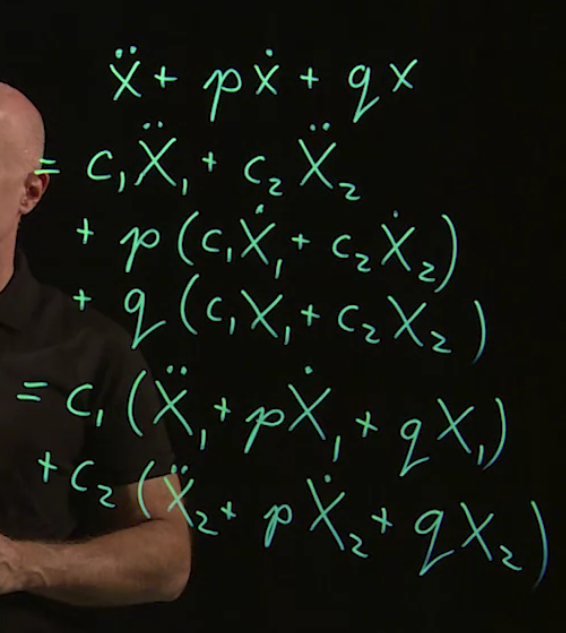 ẍ + pẋ + qx
= c₁Ẍ₁ + c₂Ẍ₂
+ p(c₁Ẋ₁ + c₂Ẋ₂)
+ q(c₁X₁ + c₂X₂)
= c₁(Ẍ₁ + pẊ₁ + qX₁)
+ c₂(Ẍ₂ + pẊ₂ + qX₂)